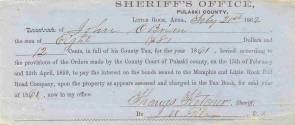 SHERIFF'S OFFICE,
PULASKI COUNTY,
LITTLE ROCK, ARKS. July 2nd 1862
Received of John O'Brien
the sum of Dollars and
12 Cents, in full of his County Tax, for the year 1861, levied according to
the provisions of the Orders made by the County Court of Pulaski county, on the 15th of February
and 25th April, 1859, to pay the interest on the bonds issued to Memphis and Little Rock Rail
Road Company, upon the property as appears assessed and charged in the Tax Book, for said year
of 1861, now in my office.
Sheriff.
By D. S.